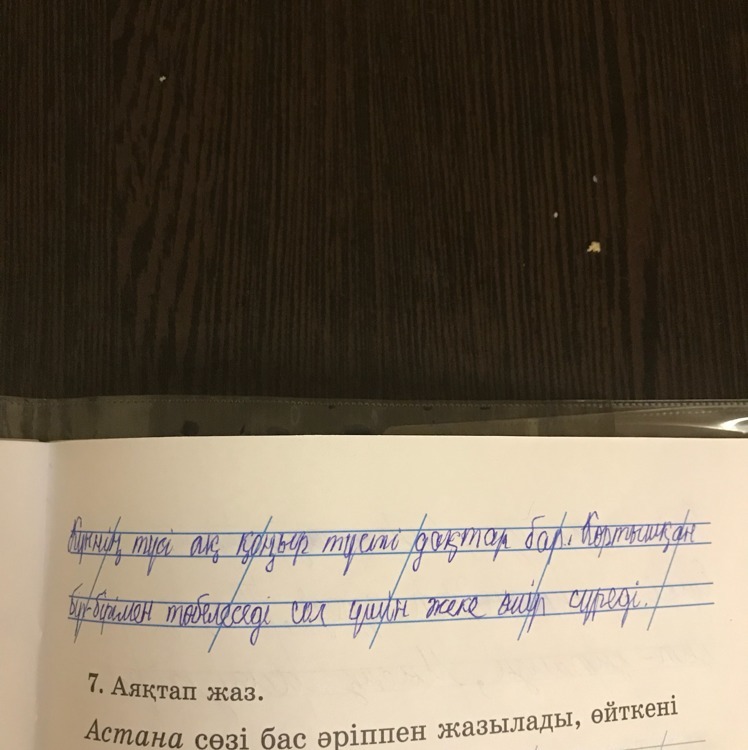 Күннің түсі ақ қоңыр түсті дақтар бар. Көртышқан
бір-бірімен төбелеседі сол үшін жеке өмір сүреді.
7. Аяқтап жаз.
Астана сөзі бас әріппен жазылады, өйткені